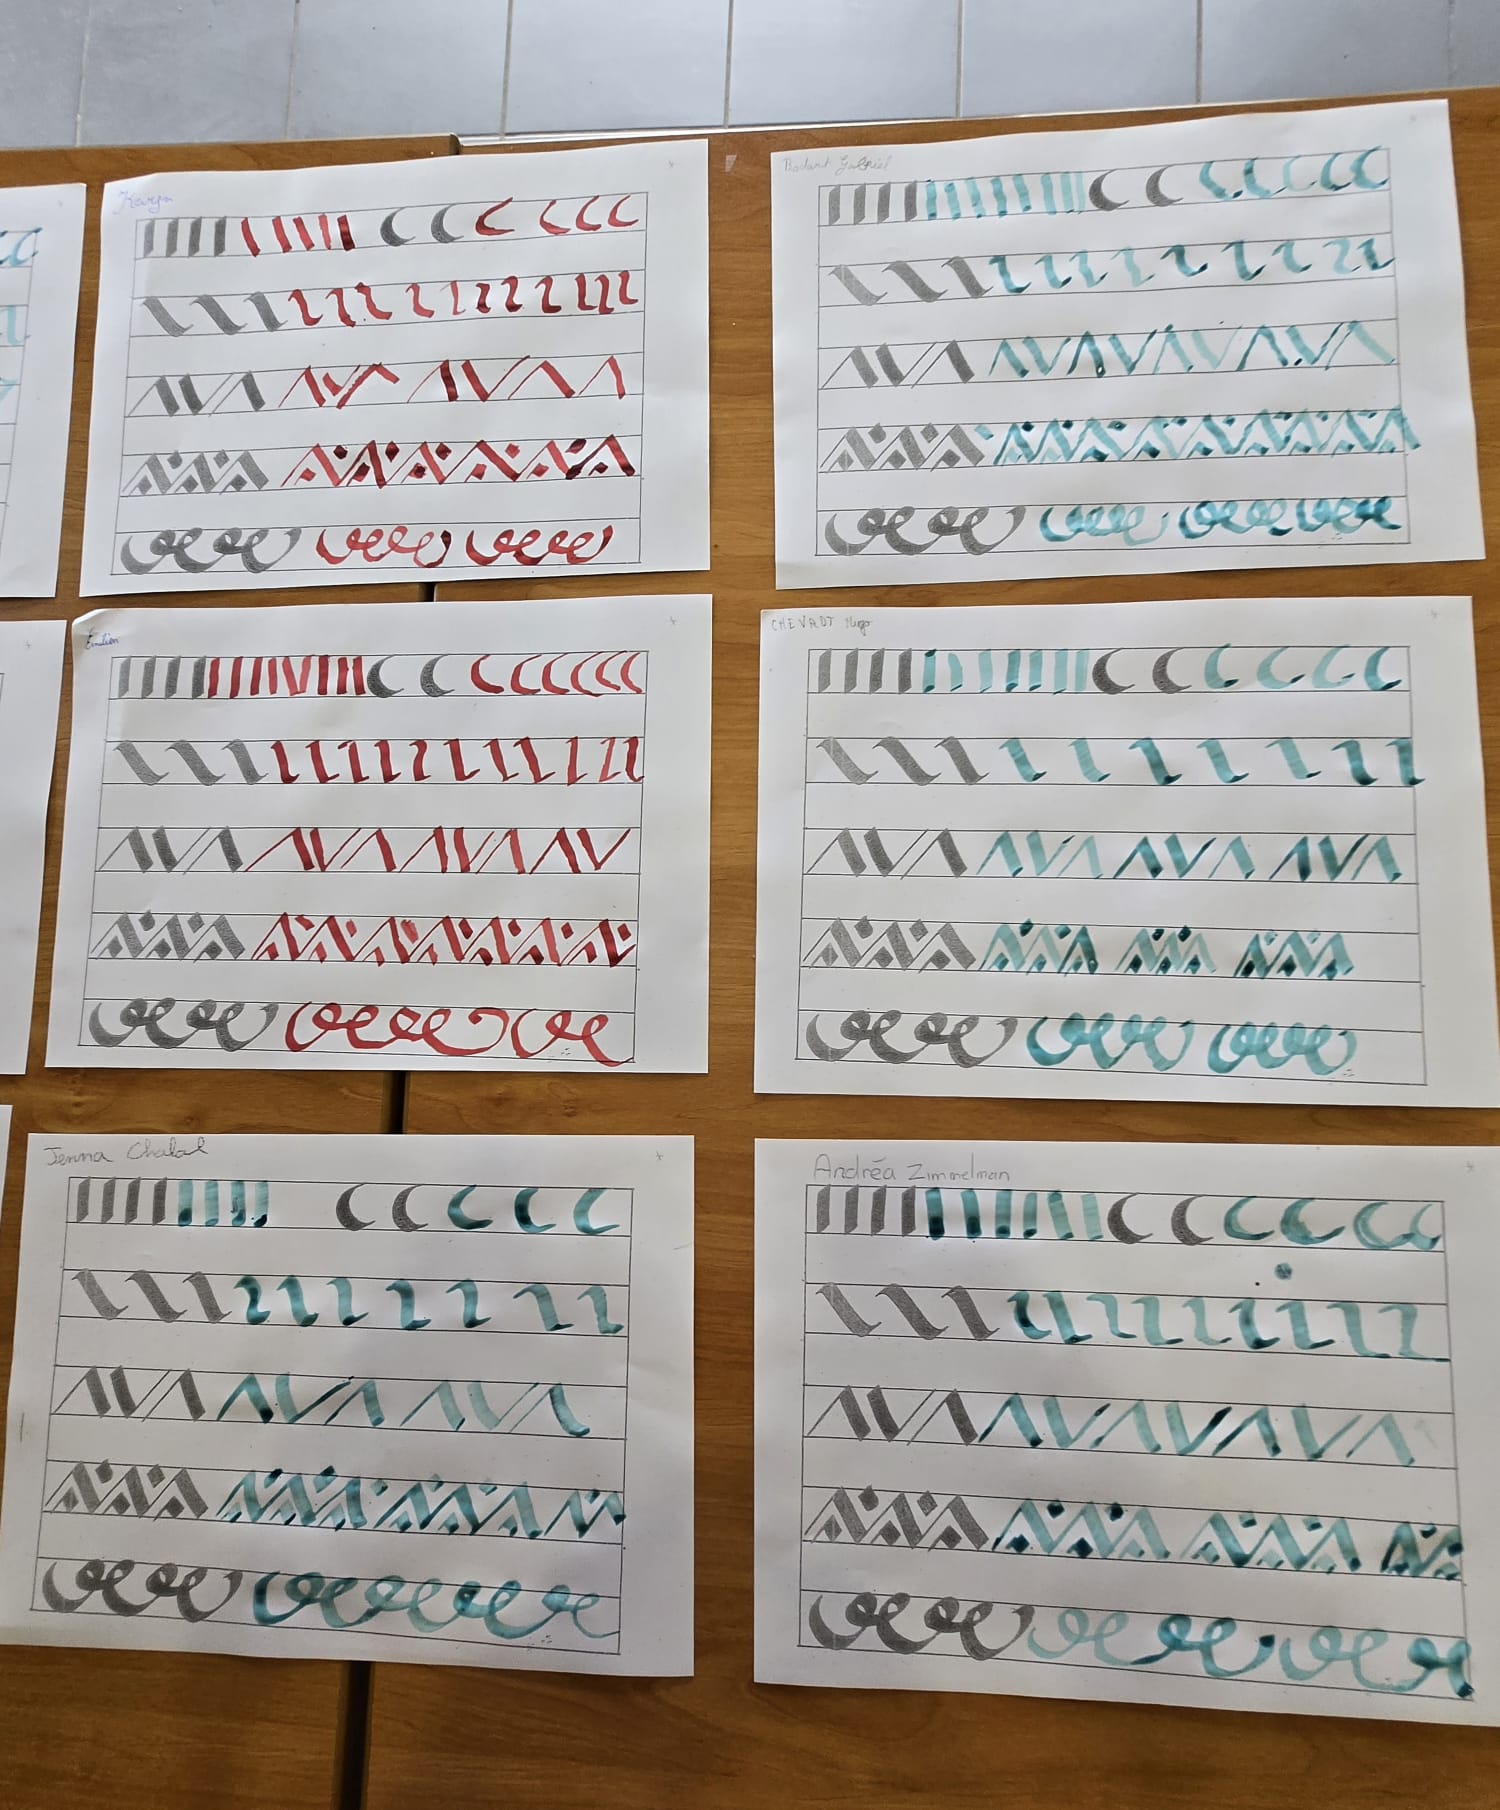 Kevyn
Bodart Gabriel
Emilien
CHEVADT Hugo
Jenna Chalal
Andréa Zimmelman